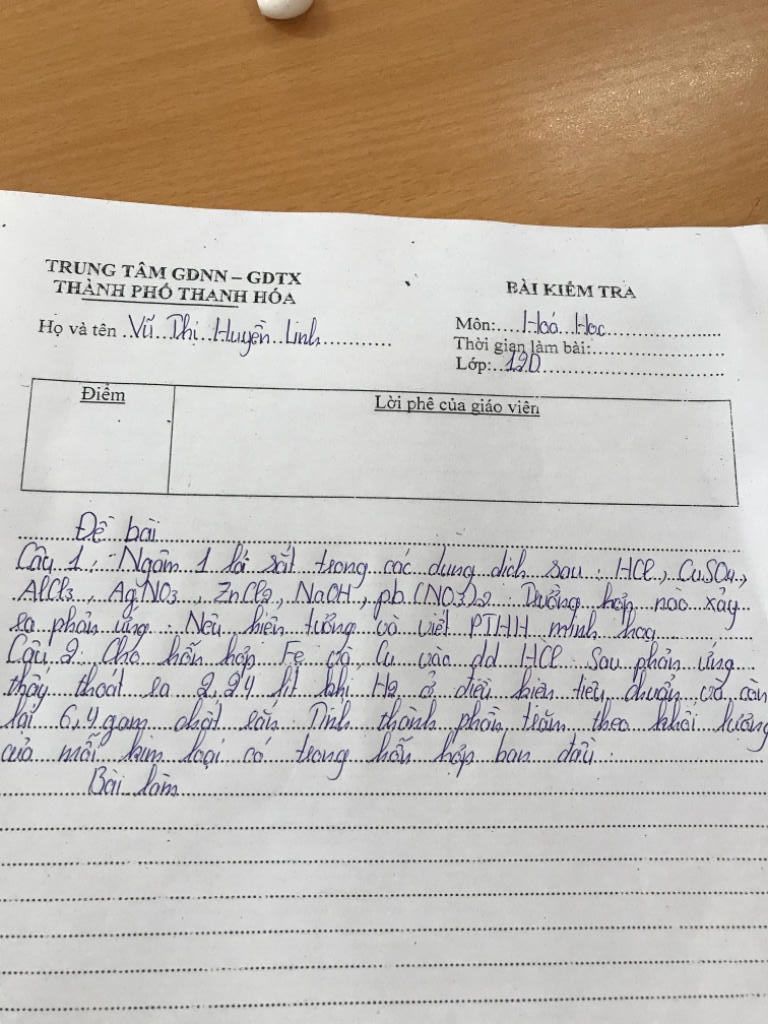 TRUNG TÂM GDNN – GDTX
THÀNH PHỐ THANH HÓA
BÀI KIỂM TRA
Họ và tên Vũ Thị Huyền Linh
Môn: Hoá Học
Thời gian làm bài:
Lớp: 12D
Điểm
Lời phê của giáo viên
Đề bài
Câu 1: Ngâm 1 lá sắt trong các dung dịch sau: HCl, CuSO4,
AlCl3, AgNO3, ZnCl2, NaOH, pb(NO3)2. Trường hợp nào xảy
ra phản ứng. Nêu hiện tượng và viết PTHH minh hoạ
Câu 2: Cho hỗn hợp Fe và Cu vào dd HCl. Sau phản ứng
thấy thoát ra 2,24 lít khí H2 ở điều kiện tiêu chuẩn và còn
lại 6,4 gam chất rắn. Tính thành phần trăm theo khối lượng
của mỗi kim loại có trong hỗn hợp ban đầu.
Bài làm